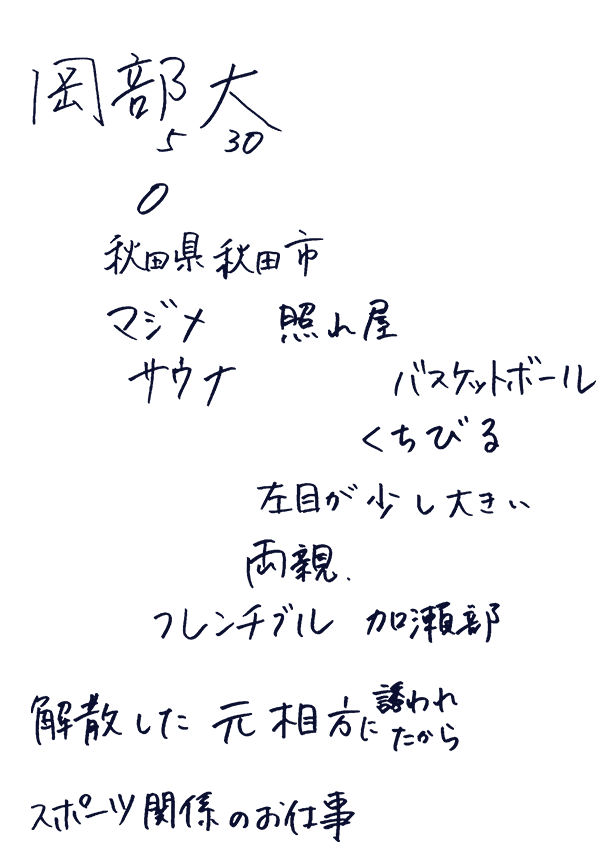 岡部大
5 30
O
秋田県秋田市
マジメ 照れ屋
サウナ バスケットボール
くちびる
左目が少し大きい
両親.
フレンチブル 加瀬部
解散した元相方に誘われ
たから
スポーツ関係のお仕事